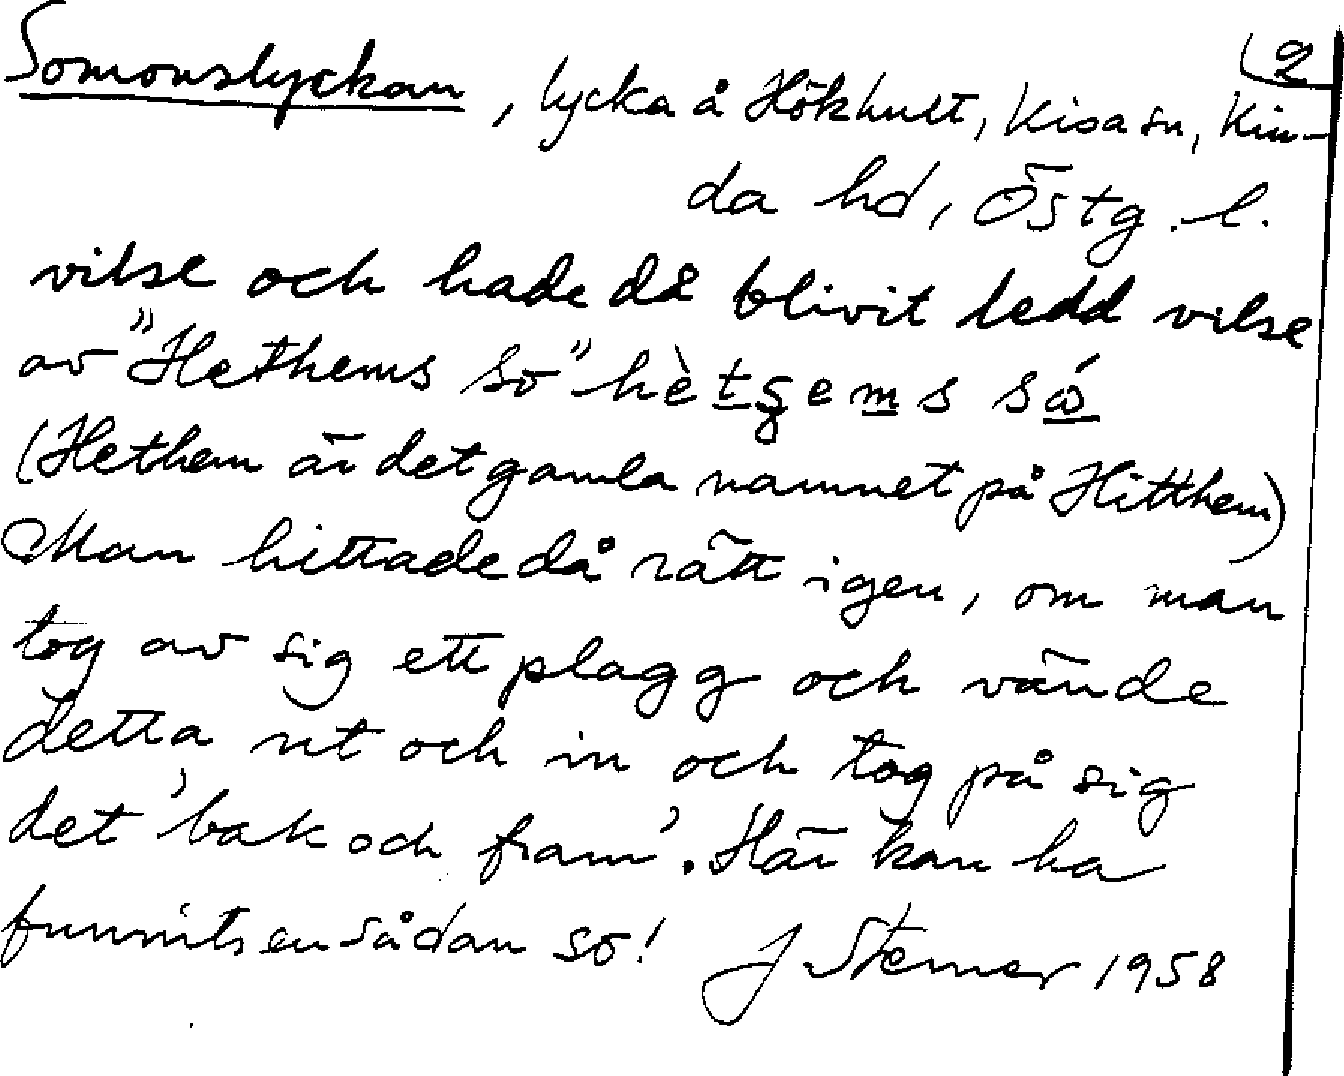 2
Somonslyckan, lycka å Hökhult, Kisa sn, Kin-
da hd, Östg. l.
vilse och hade då blivit ledd vilse
av "Hethems so" hètsems só
(Hethem är det gamla namnet på Hitthem)
Man hittade då rätt igen, om man
tog av sig ett plagg och vände
detta ut och in och tog på sig
det 'bak och fram'. Här kan ha
funnits en sådan so! J Sterner 1958